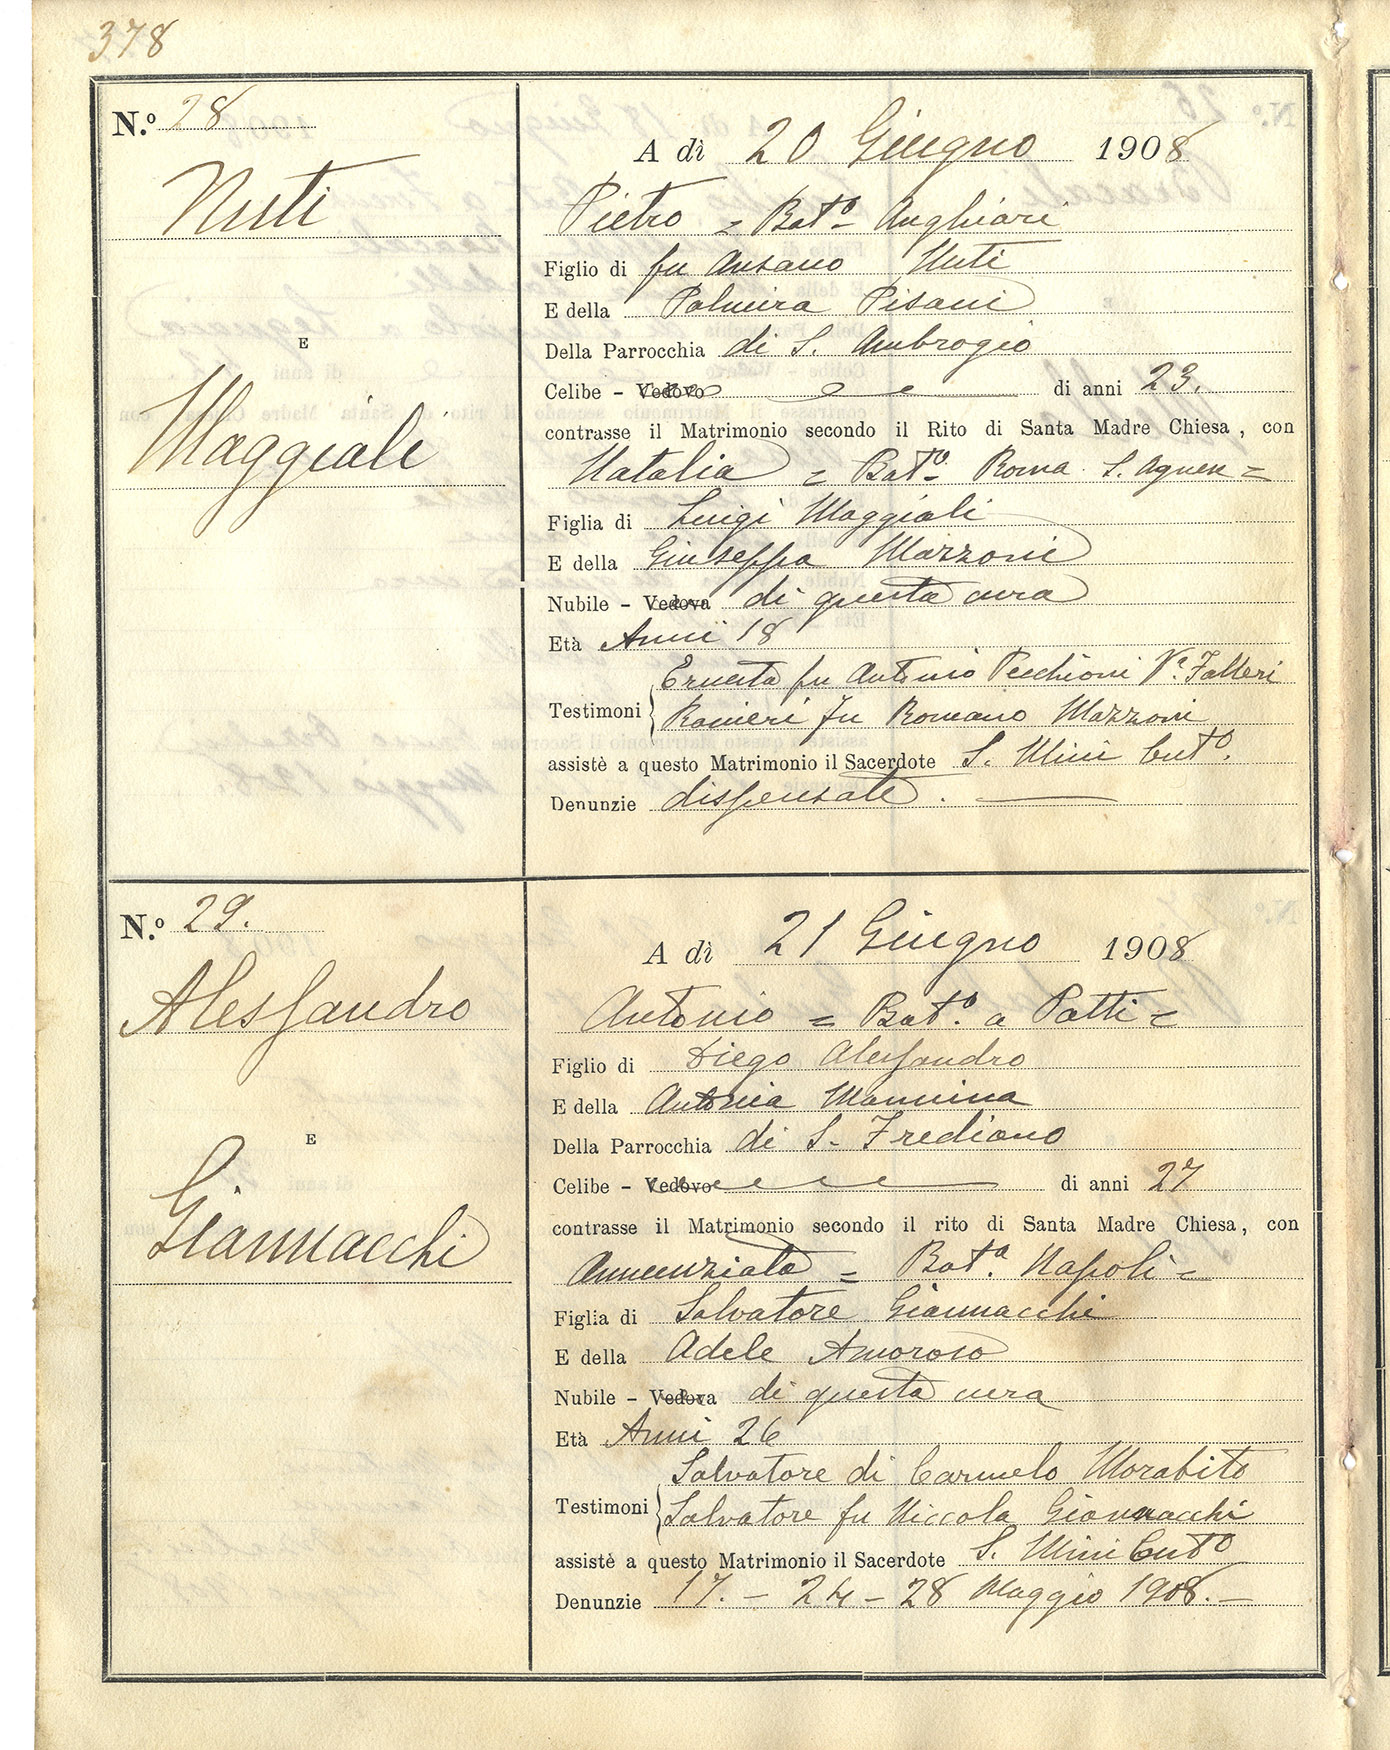 378
N.o 28
Nuti
E
Maggiali
A dì 20 Giugno 1908
Pietro = Bat.o Anghiari
Figlio di fu Ansano Nuti
E della Palmira Pisani
Della Parrocchia di S. Ambrogio
Celibe – Vedovo di anni 23.
contrasse il Matrimonio secondo il Rito di Santa Madre Chiesa, con
Natalia = Bat.a Roma S. Agnese =
Figlia di Luigi Maggiali
E della Giuseppa Mazzoni
Nubile – Vedova di questa cura
Età Anni 18
Ernesta fu Antonio Pecchioni V.a Falleri
Testimoni Ranieri fu Romano Mazzoni
assistè a questo Matrimonio il Sacerdote S. Mini Cut.o
Denunzie dispensate.
N.o 29.
Alessandro
E
Giannacchi
A dì 21 Giugno 1908
Antonio = Bat.o a Patti =
Figlio di Diego Alessandro
E della Antonia Mannina
Della Parrocchia di S. Frediano
Celibe – Vedovo di anni 27
contrasse il Matrimonio secondo il rito di Santa Madre Chiesa, con
Annunziata = Bat.a Napoli =
Figlia di Salvatore Giannacchi
E della Adele Amoroso
Nubile – Vedova di questa cura
Età Anni 26
Salvatore di Carmelo Morabito
Testimoni Salvatore fu Niccola Giannacchi
assistè a questo Matrimonio il Sacerdote S. Mini Cut.o
Denunzie 17. – 24 – 28 Maggio 1908. –